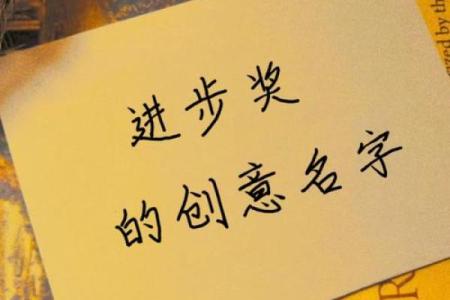 进步奖
的创意名字
zed by the